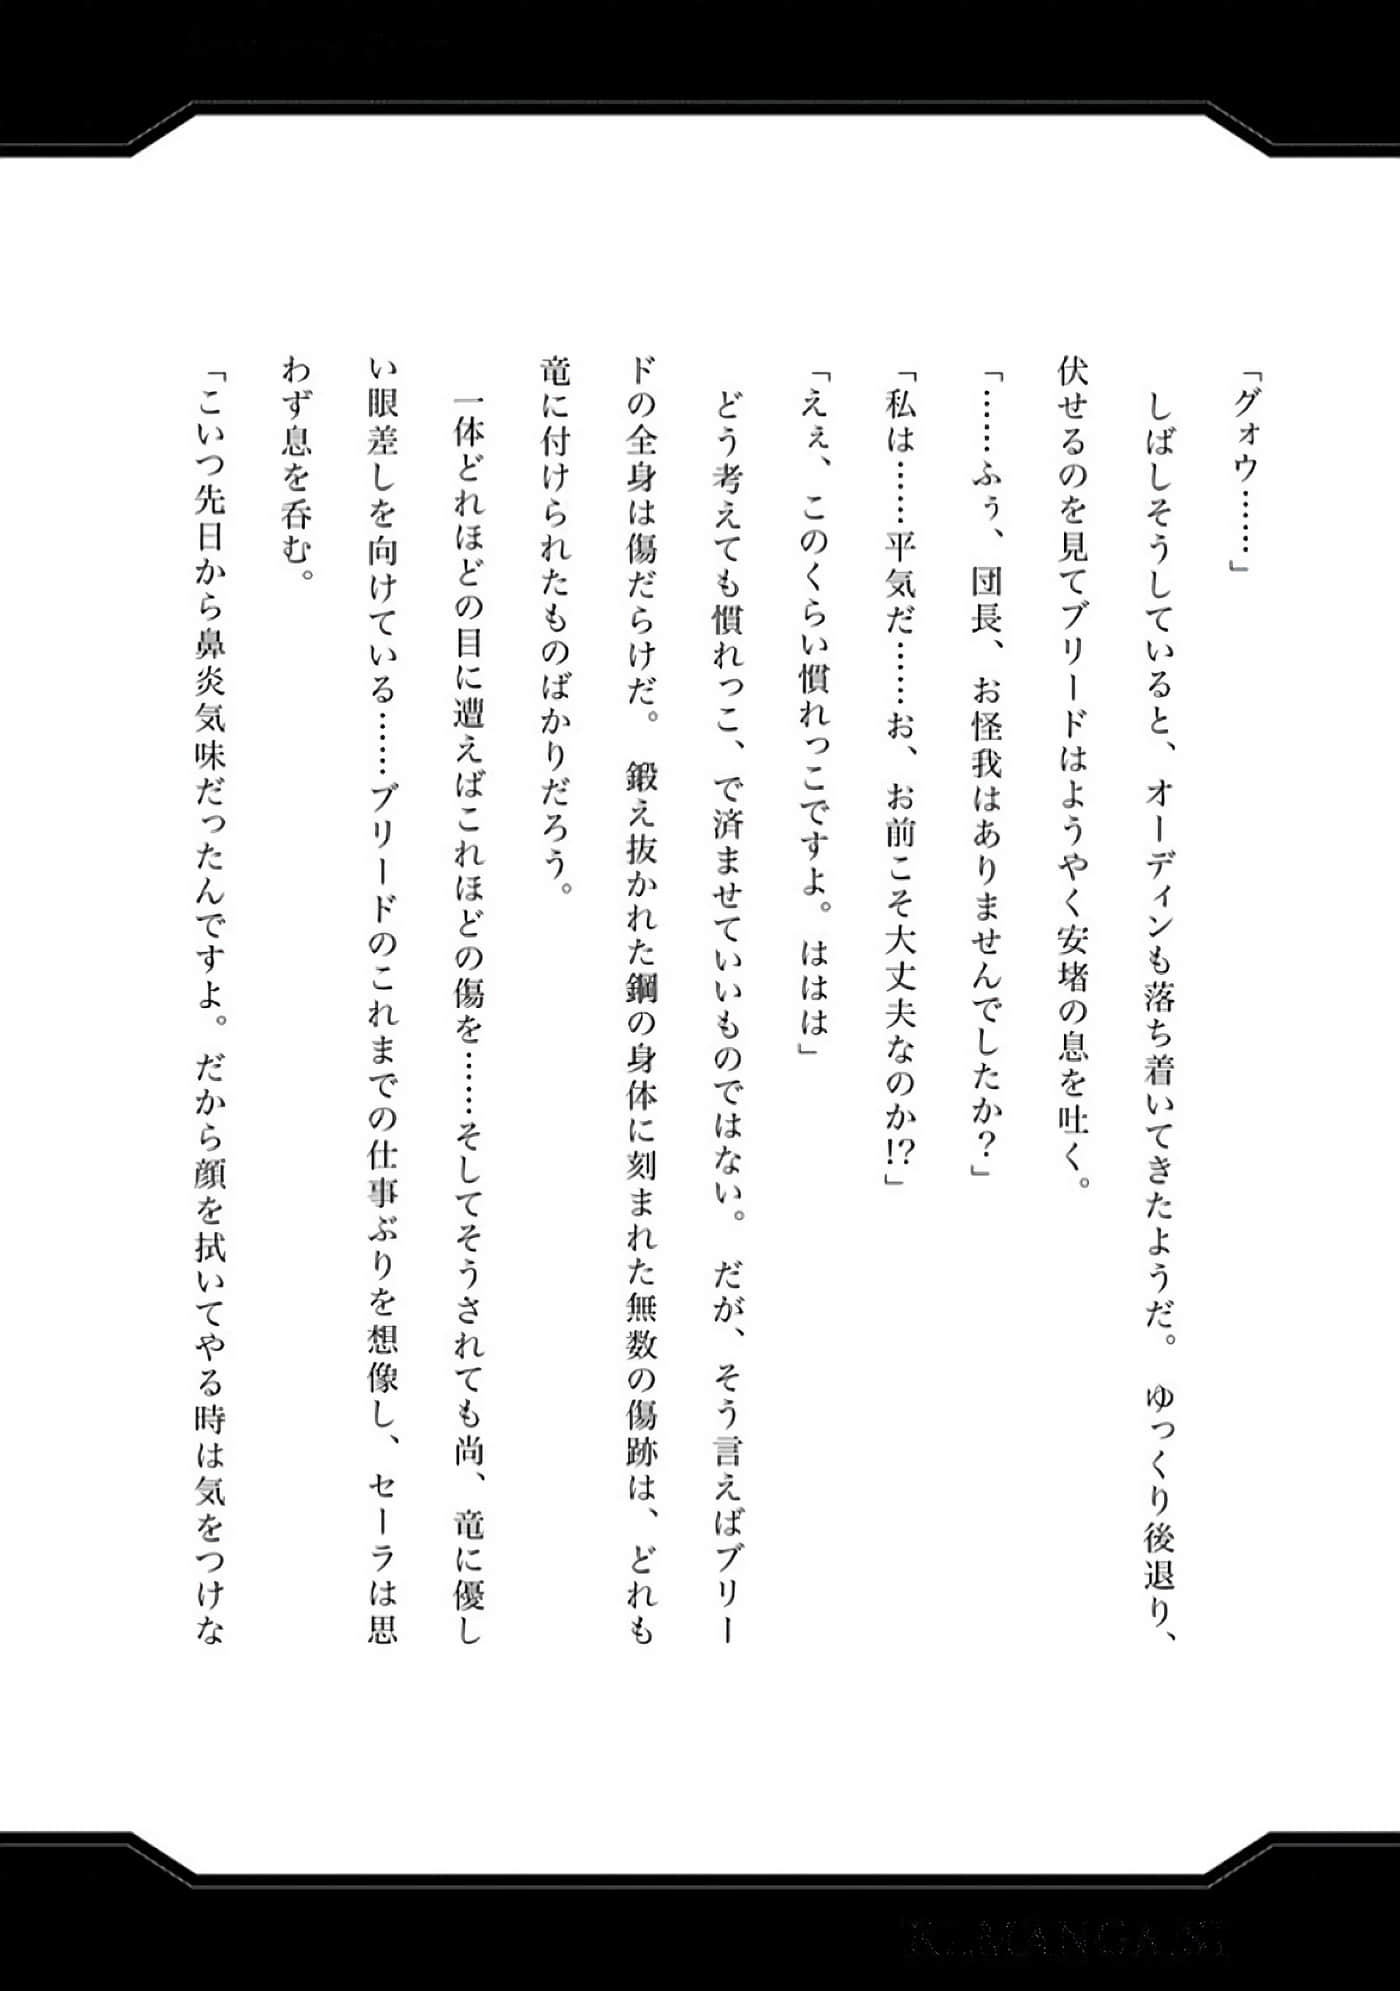 「グォウ……」
しばしそうしていると、オーディンも落ち着いてきたようだ。ゆっくり後退り、
伏せるのを見てブリードはようやく安堵の息を吐く。
「……ふぅ、団長、お怪我はありませんでしたか？」
「私は……平気だ……お、お前こそ大丈夫なのか!?」
「えぇ、このくらい慣れっこですよ。ははは」
どう考えても慣れっこ、で済ませていいものではない。だが、そう言えばブリー
ドの全身は傷だらけだ。鍛え抜かれた鋼の身体に刻まれた無数の傷跡は、どれも
竜に付けられたものばかりだろう。
一体どれほどの目に遭えばこれほどの傷を……そしてそうされても尚、竜に優し
い眼差しを向けている……ブリードのこれまでの仕事ぶりを想像し、セーラは思
わず息を呑む。
「こいつ先日から鼻炎気味だったんですよ。だから顔を拭いてやる時は気をつけな